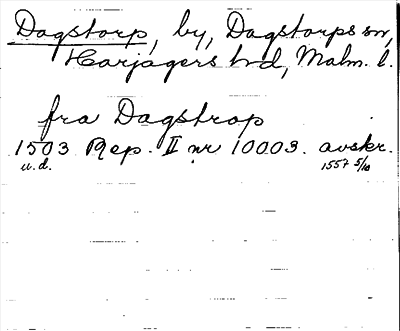 Dagstorp, by, Dagstorps sn,
Harjagers hd, Malm. l.
fra Dagstrop
1503 Rep. II nr 10003. avskr.
u.d. 1557 5/10